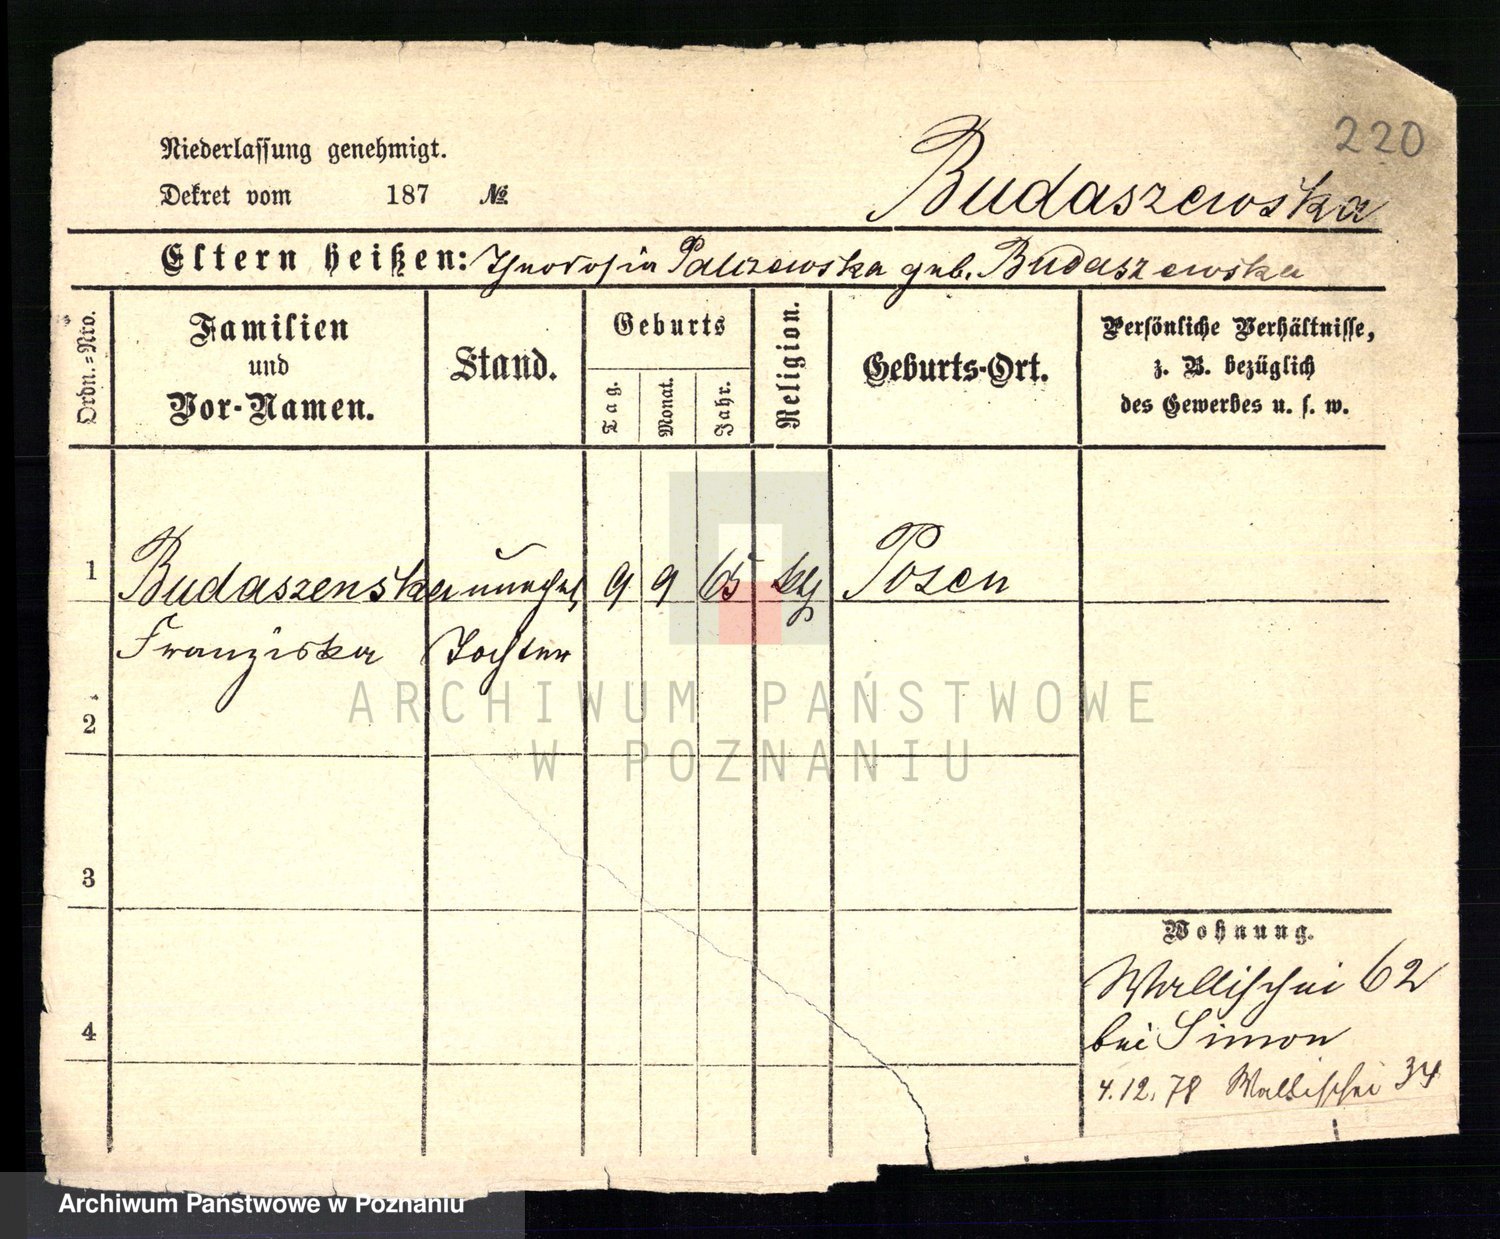 220
Niederlassung genehmigt.
Budaszewska
Dekret vom 187 №
Eltern heißen: Theodosia Paliszewska geb. Budaszewska
Ordn.-Nro.
Familien
und
Vor-Namen.
Stand.
Geburts
Tag.
Monat.
Jahr.
Religion.
Geburts-Ort.
Persönliche Verhältnisse,
z. B. bezüglich
des Gewerbes u. s. w.
1 Budaszenska unehel 9 9 65 kth Posen
Franziska Tochter
2
3
4
Wohnung.
Wallischei 62
bei Simon
4.12.78 Wallischei 34
ARCHIWUM PAŃSTWOWE
W POZNANIU
Archiwum Państwowe w Poznaniu